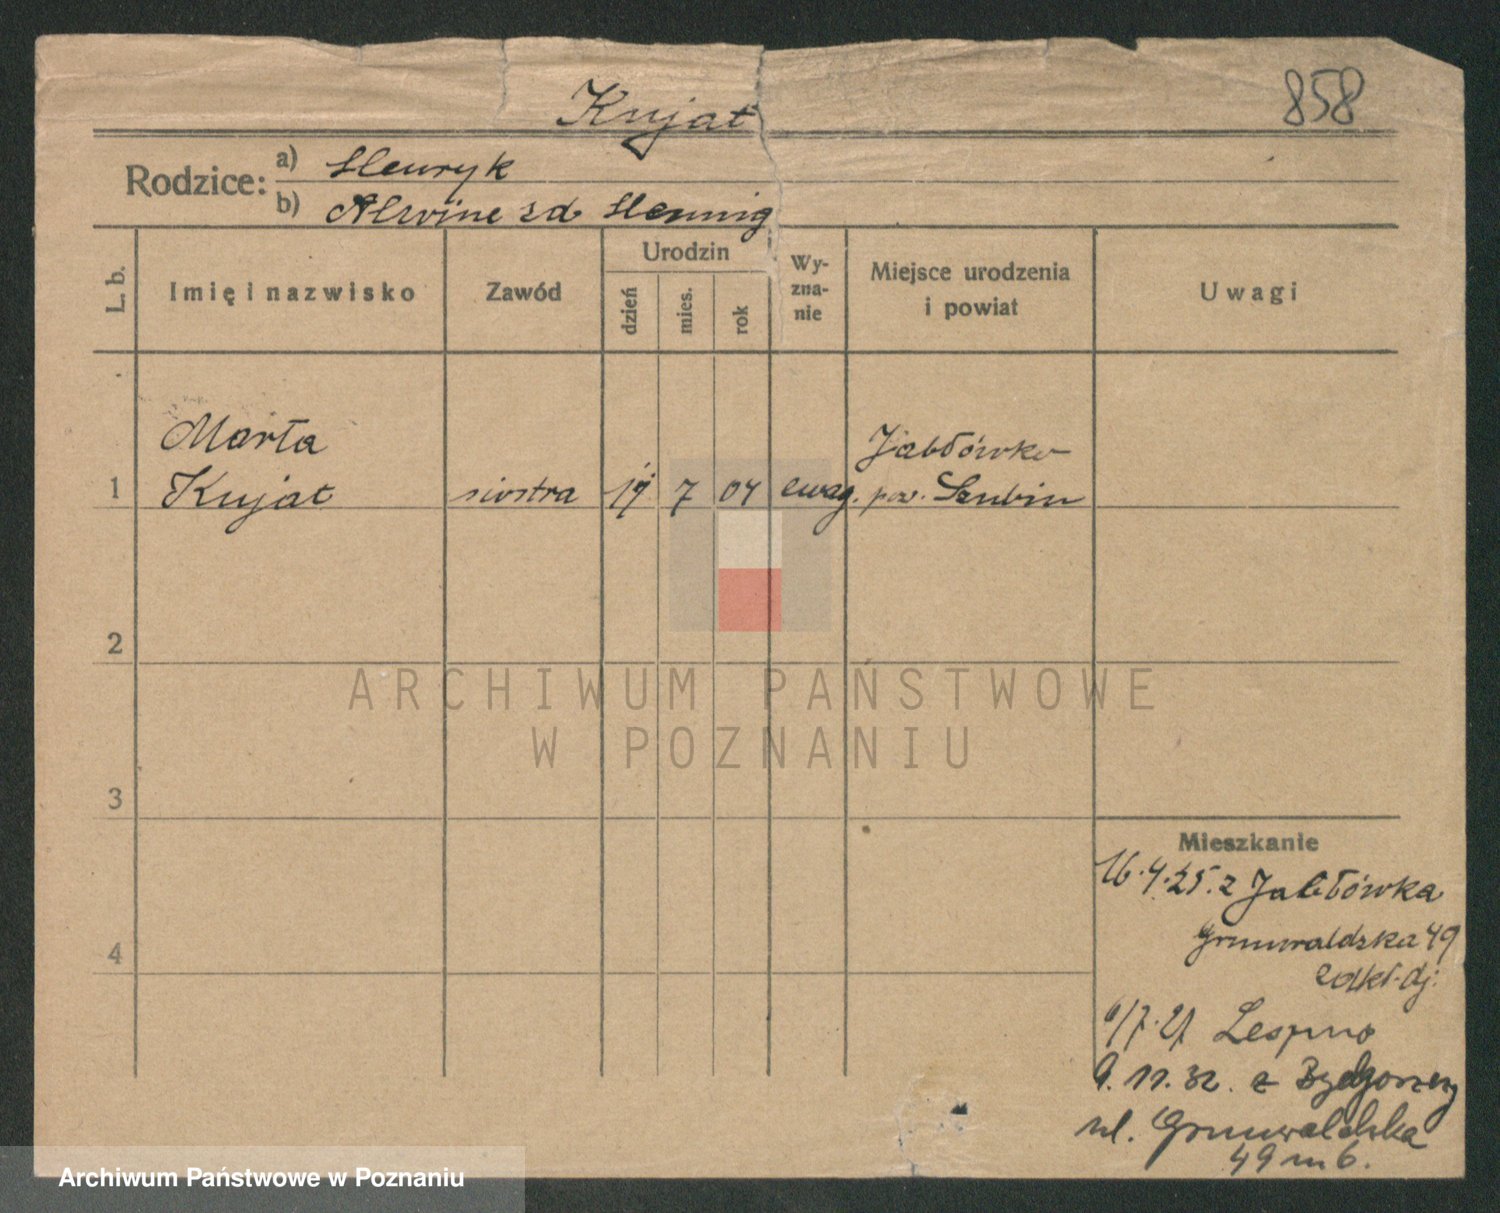 858
Kujat
Rodzice: a) Henryk
b) Alwine zd Hennig
L. b.
Imię i nazwisko
Zawód
Urodzin
dzień
mies.
rok
Wy-
zna-
nie
Miejsce urodzenia
i powiat
Uwagi
Marta
Jabłówko
1 Kujat siostra 7 04 ewag. pow. Szubin
2
3
4
ARCHIWUM PAŃSTWOWE
W POZNANIU
Mieszkanie
16.4.25. z Jabłówka
Grunwaldzka 49
Lespno
9.11.32. z Bydgoszczy
ul. Grunwaldzka
49 m 6.
Archiwum Państwowe w Poznaniu